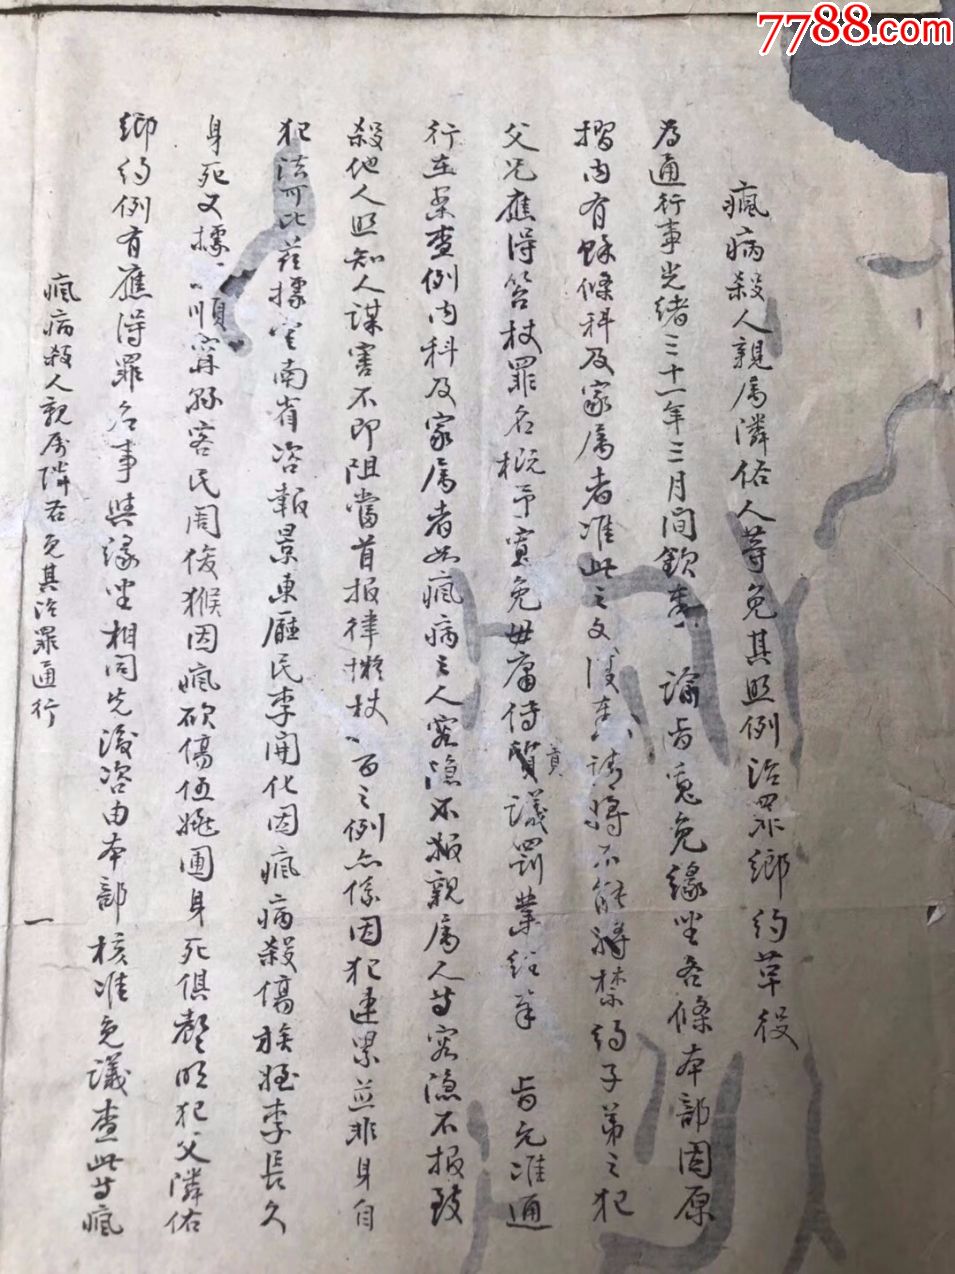 7788.com
瘋病殺人親属隣佑人等免其照例治罪鄉約革役
為通行事光緒三十一年三月間欽奉 諭旨寬免緣坐各條本部因原
摺内有餘條科及家属者准此之文復奏請將不能禁約子弟之犯
父兄應得笞杖罪名概予寬免毋庸侍質議罰業經奉 旨允准通
行在案查例内科及家属者如瘋病之人容隐不報親属人等容隐不報致
殺他人照知人謀害不即阻當首报律擬杖一百之例亦係因犯連累並非身自
犯法可比茲據雲南省咨報景東廳民李開化因瘋病殺傷族姪李長久
身死又據順寜縣客民周俊猴因瘋砍傷伍姚囤身死俱聲明犯父隣佑
鄉約例有應得罪名事與緣坐相同先後咨由本部核准免議查此等瘋
瘋病殺人親属隣右免其治罪通行
一